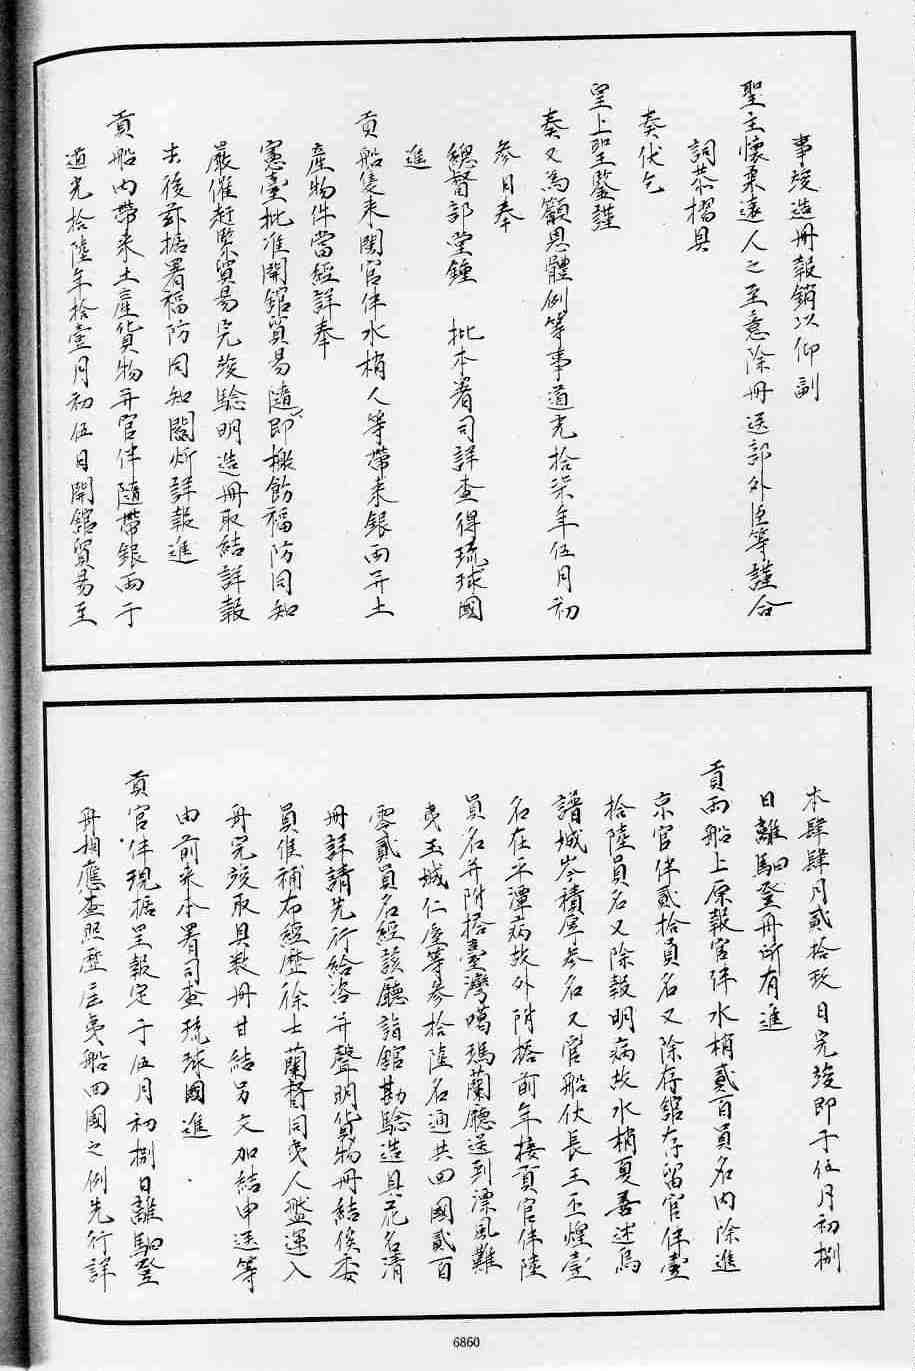 事竣造冊報銷以仰副
聖主懷柔遠人之至意除冊送部外臣等謹合
詞恭摺具
奏伏乞
皇上聖鑒謹
奏又為籲恩體例等事道光拾柒年伍月初
參日奉
總督部堂鍾 批本署司詳查得琉球國
進
貢船隻来閩官伴水梢人等帶来銀両并土
產物件當經詳奉
憲臺批准開舘貿易隨即檄飭福防同知
嚴催赶緊貿易完竣驗明造冊取結詳報
去後茲據署福防同知閻炘詳報進
貢船内帶来土產貨物并官伴隨帶銀両于
道光拾陸年拾壹月初伍日開舘貿易至
本肆肆月貳拾玖日完竣即于伍月初捌
日離駅登舟所有進
貢両船上原報官伴水梢貳百員名内除進
京官伴貳拾員名又除存舘存留官伴壹
拾陸員名又除報明病故水梢夏善述烏
譜城岑積厚參名又官船伙長王丕煌壹
名在平潭病故外附搭前年接貢官伴陸
員名并附搭臺灣噶瑪蘭廳送到漂風難
夷玉城仁屋等參拾陸名通共回國貳百
零貳員名經該廳詣舘勘驗造具花名清
冊詳請先行給咨并聲明貨物冊結俟委
員候補布經歷徐士蘭督同夷人盤運入
舟完竣取具数冊甘結另文加結申送等
由前来本署司查琉球國進
貢官伴現據呈報定于伍月初捌日離駅登
舟相應查照歷届夷船回國之例先行詳
6860